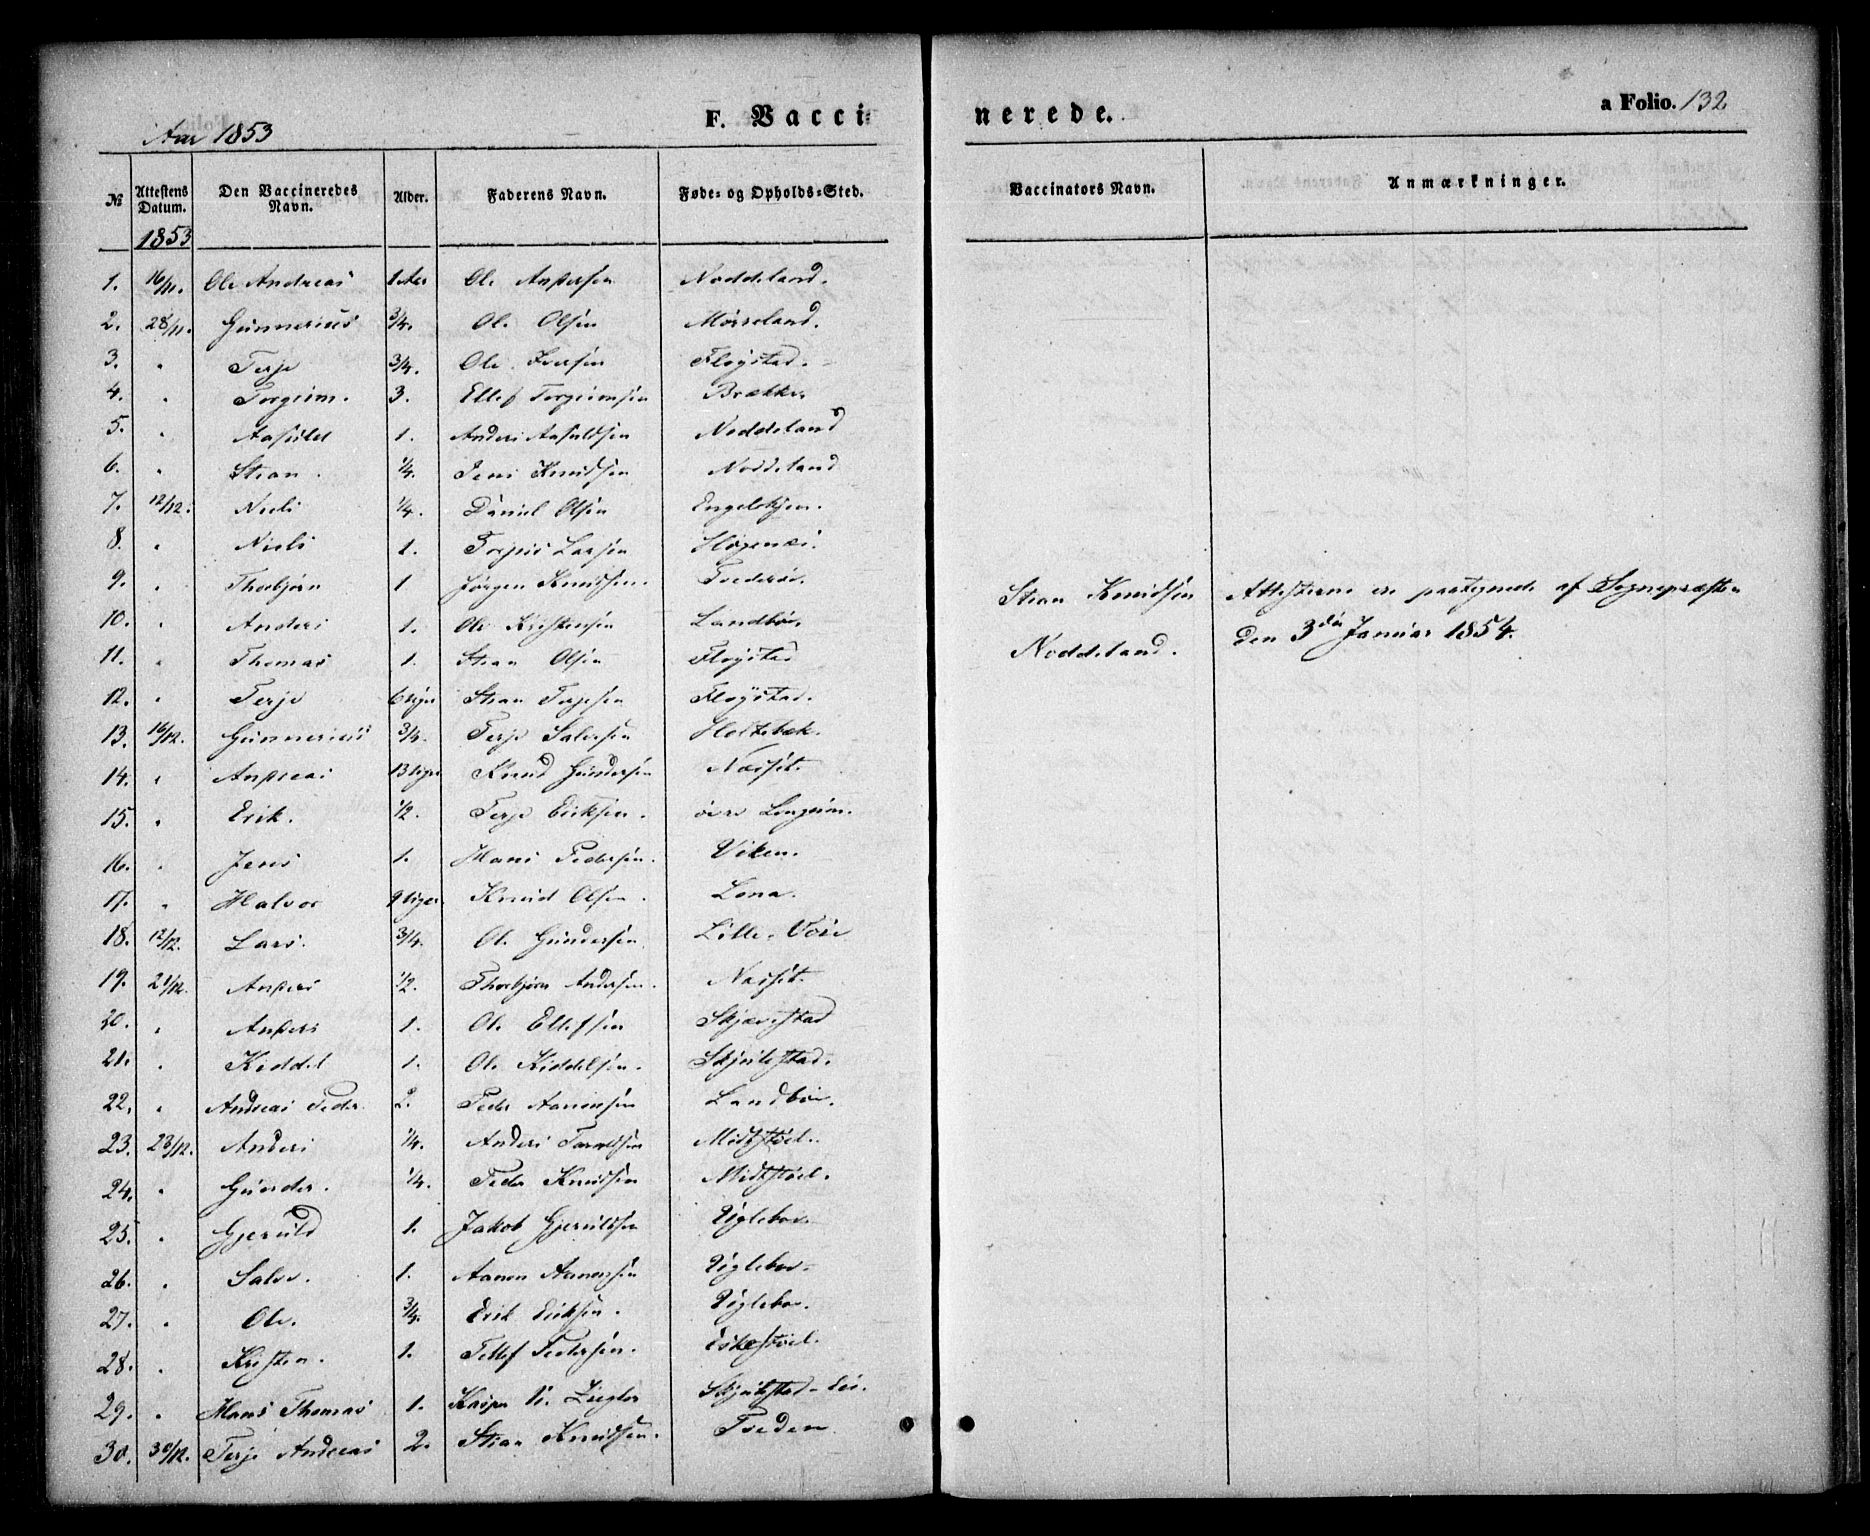 Aar 1853
F. Vaccinerede.
a Folio. 132
№ Attestens Datum. Den Vaccineredes Navn. Alder. Faderens Navn. Føde- og Opholds-Sted. Vaccinators Navn. Anmærkninger.
1853
1. 16/11. Ole Andreas 1 Aar Ole Andersen Noddeland.
2. 28/11. Gunnerius 3/4. Ole Olsen Mørseland.
3. " Terje 3/4. Ole Iversen Fløystad.
4. " Torgrim. 3. Ellef Torgrimsen Brække.
5. " Aasuld 1. Anders Aasuldsen Noddeland
6. " Stian. 1/4. Jens Knudsen Noddeland
7. 12/12. Niels 1/4. Daniel Olsen Engelskjen.
8. " Niels 1. Torjus Larsen
9. " Thorbjørn 1 Jørgen Knudsen. Tvederøe.
10. " Anders 1. Ole Kristensen Landbøe.
11. " Thomas 1. Stian Olsen Fløystad
12. " Terje 6 Uger Stian Terjesen Fløystad.
13. 16/12. Gunnerius 3/4. Terje Salvesen Holtebæk.
14. " Andreas 13 Uger Knud Gundersen Næsset.
15. " Erik. 1/2. Terje Eriksen. øvre Longum.
16. " Jens 1. Hans Pedersen. Viken.
17. " Halvor 9 Uger. Knud Olsen. Lona.
18. 12/12. Lars. 3/4. Ole Gundersen Lille-Vøie
19. 21/12. Anders 1/2. Thorbjørn Andersen. Næsset.
20. " Anders 1. Ole Ellefsen Skjævestad
21. " Keddel 1. Ole Kiddelsen. Skjulestad.
22. " Andreas Peder. 2. Peder Aanonsen Landbøe.
23. 23/12. Anders 1/4. Anders Taraldsen Midtstøel.
24. " Gunder. 1/4. Peder Knudsen Midtstøel.
25. " Gjeruld 1. Jakob Gjeruldsen Ugleboe.
26. " Salve. 1. Aanon Aanonsen Ugleboe.
27. " Ole. 3/4. Erik Eriksen. Ugleboe.
28. " Kristen. 1. Tellef Pedersen. Eskestøel.
29. " Hans Thomas 1. Kasper U. Ziegler Skjulestad-Eie.
30. 30/12. Terje Andreas 2. Stian Knudsen. Tveden
Stian Knudsen
Noddeland.
Attesterne ere paategnede af Sognepræsten
den 3die Januar 1854.